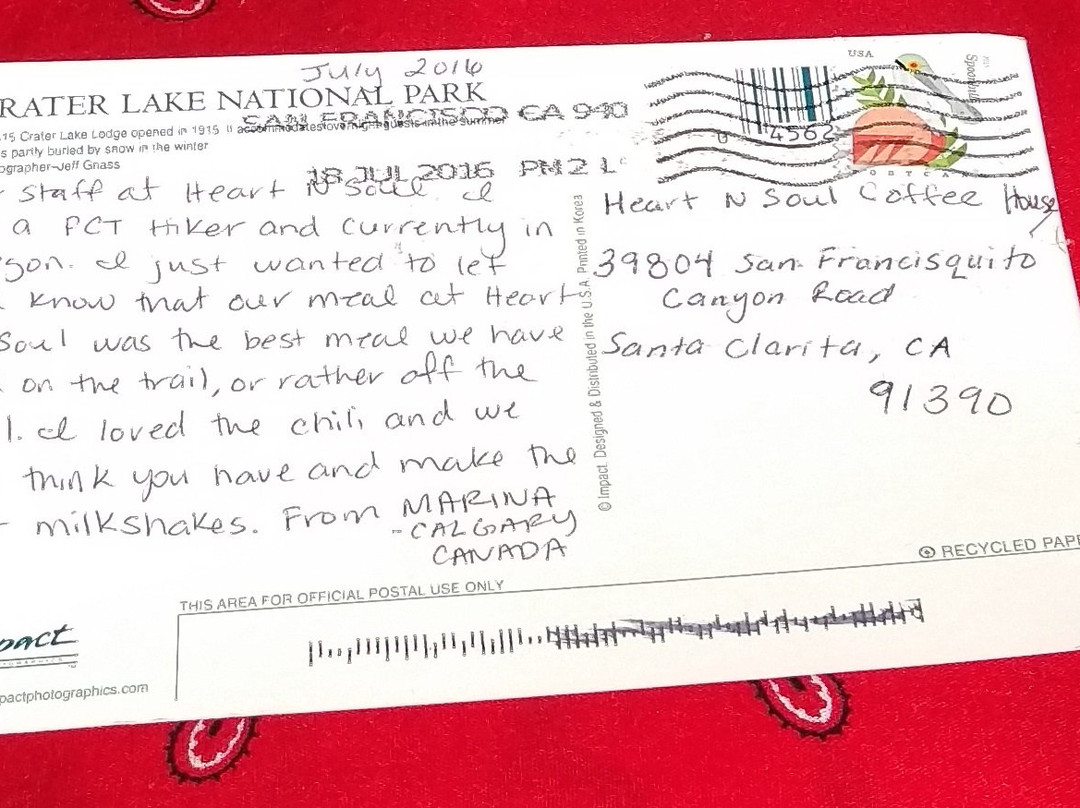 July 2016
RATER LAKE NATIONAL PARK
SAN FRANCISCO CA 940
15 Crater Lake Lodge opened in 1915 It accommodates overnight guests in the summer
s partly buried by snow in the winter
ographer-Jeff Gnass
18 JUL 2016 PM 2 L
staff at Heart N Soul I
a PCT Hiker and currently in
gon. I just wanted to let
know that our meal at Heart
Soul was the best meal we have
on the trail, or rather off the
l. I loved the chili and we
think you have and make the
milkshakes. From MARINA
-CALGARY
CANADA
© Impact. Designed & Distributed in the U.S.A. Printed in Korea
USA
04562
Heart N Soul Coffee House
39804 San Francisquito
Canyon Road
Santa Clarita, CA
91390
RECYCLED PAP
THIS AREA FOR OFFICIAL POSTAL USE ONLY
pact
pactphotographics.com